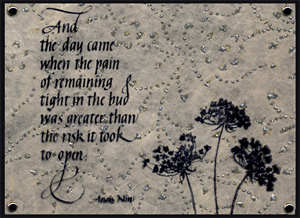 And
the day came
when the pain
of remaining
tight in the bud
was greater than
the risk it took
to open.
Anaïs Nin